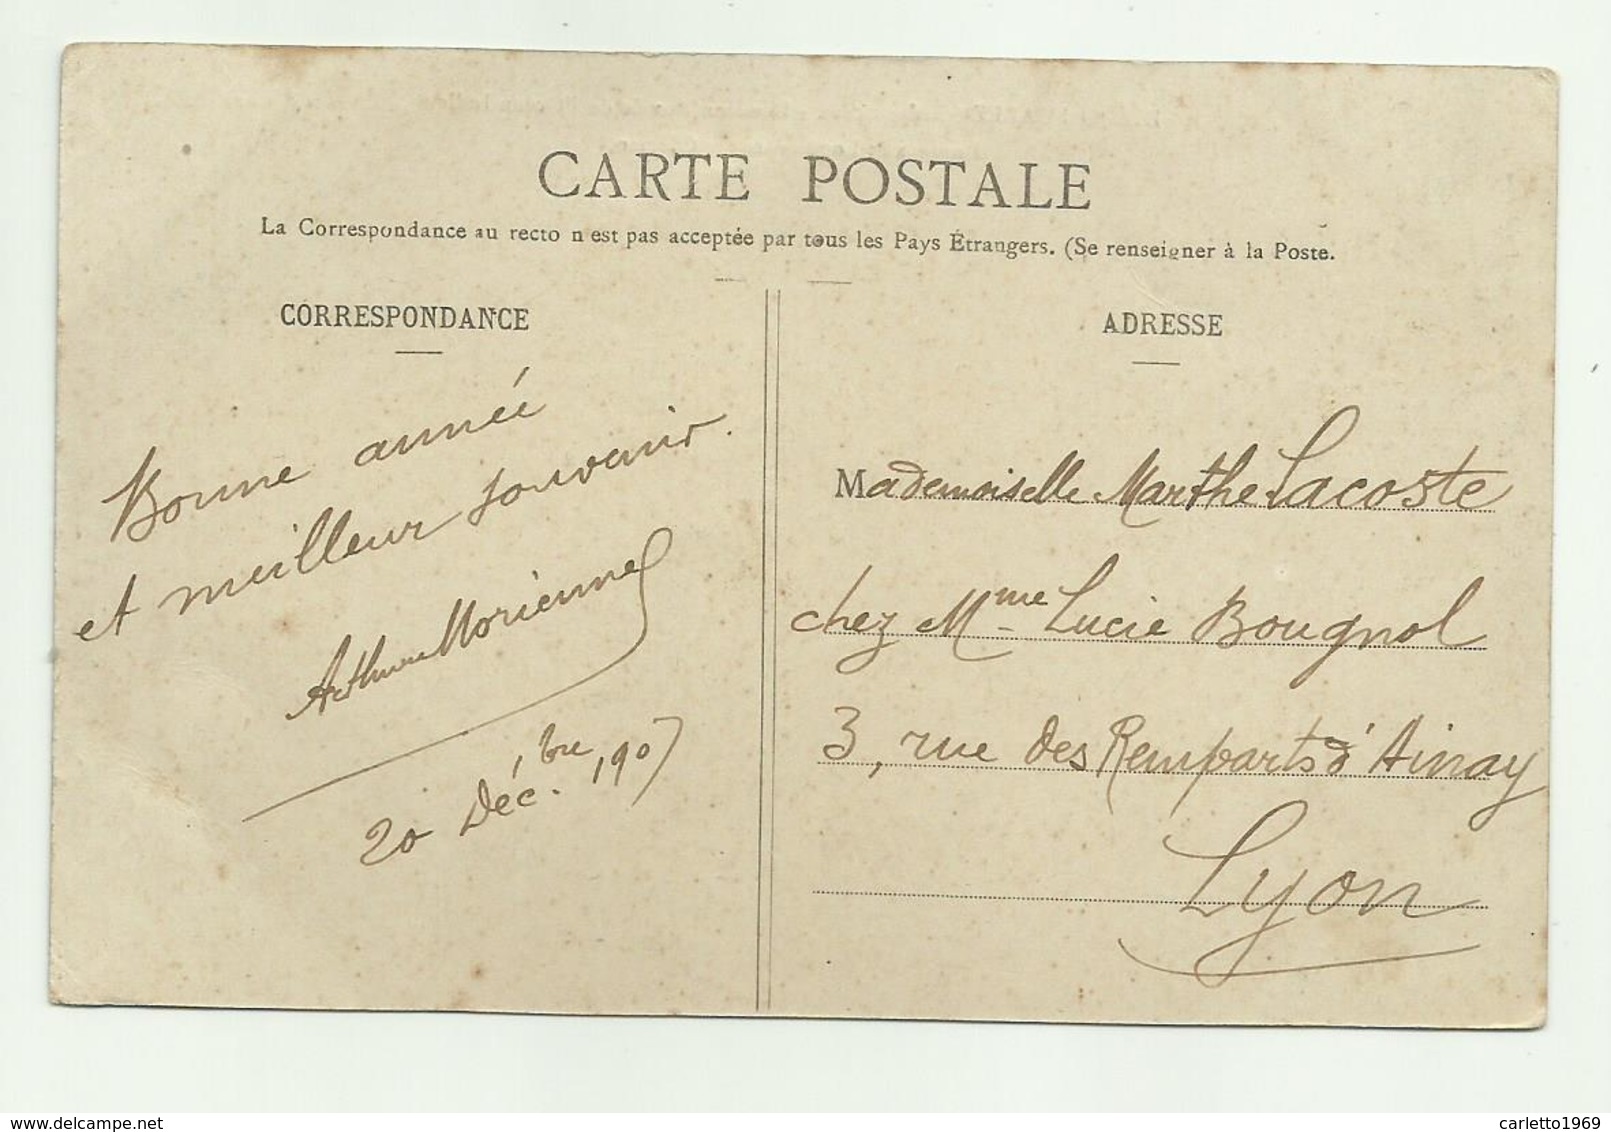 CARTE POSTALE
La Correspondance au recto n est pas acceptée par tous les Pays Étrangers. (Se renseigner à la Poste.
CORRESPONDANCE
Bonne année
et meilleur souvenir.
Arthur Morienne
20 Déc.bre 1907
ADRESSE
Mademoiselle Marthe Lacoste
chez Mme Lucie Bougnol
3, rue des Remparts d'Ainay
Lyon
www.delcampe.net
carletto1969